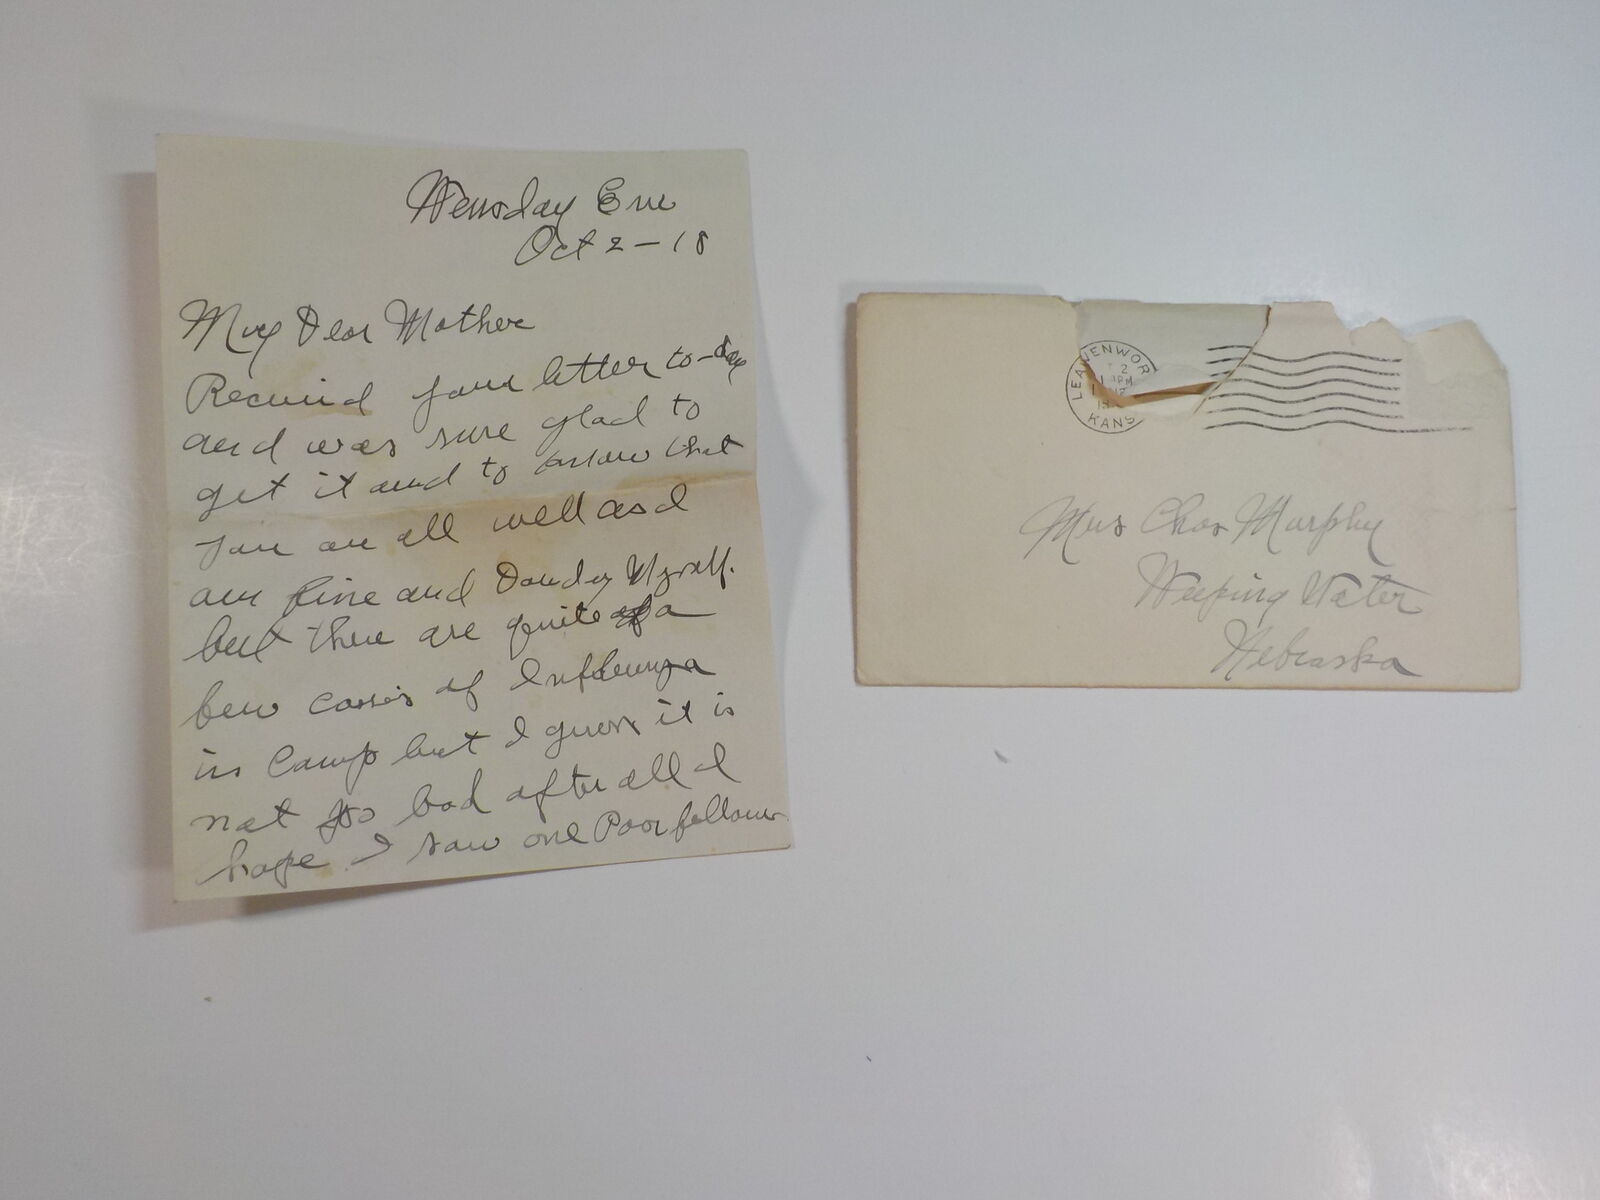 Wensday Eve
Oct 2-18
My Dear Mother
Recevied your letter to-day
and was sure glad to
get it and to know that
you are all well as I
am fine and Dandy Myself.
but there are quite a
few cases of Influenza
in Camp but I guess it is
not so bad after all I
hope I saw one Poor fellow
LEAVENWOR
2
PM
KANS
Mrs Chas Murphy
Weeping Water
Nebraska